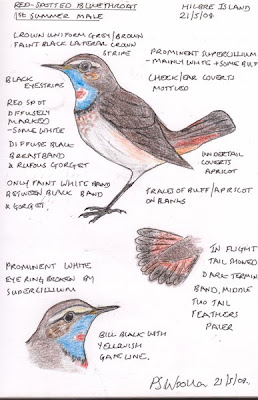 RED-SPOTTED BLUETHROAT
1ST SUMMER MALE
HILBRE ISLAND
21/5/08.
CROWN UNIFORM GREY/BROWN
FAINT BLACK LATERAL CROWN
STRIPE
PROMINENT SUPERCILLIUM
- MAINLY WHITE + SOME BUFF
CHEEK/EAR COVERTS
MOTTLED
BLACK
EYESTRIPE
RED SPOT
DIFFUSELY
MARKED
- SOME WHITE
DIFFUSE BLACK
BREASTBAND
& RUFOUS GORGET
ONLY FAINT WHITE BAND
BETWEEN BLACK BAND
& GORGET
UNDERTAIL
COVERTS
APRICOT
TRACES OF BUFF/APRICOT
ON FLANKS
PROMINENT WHITE
EYE RING BROKEN BY
SUPERCILLIUM
IN FLIGHT
TAIL SHOWED
DARK TERMINAL
BAND, MIDDLE
TWO TAIL
FEATHERS
PALER
BILL BLACK WITH
YELLOWISH
GAPE LINE.
21/5/08.